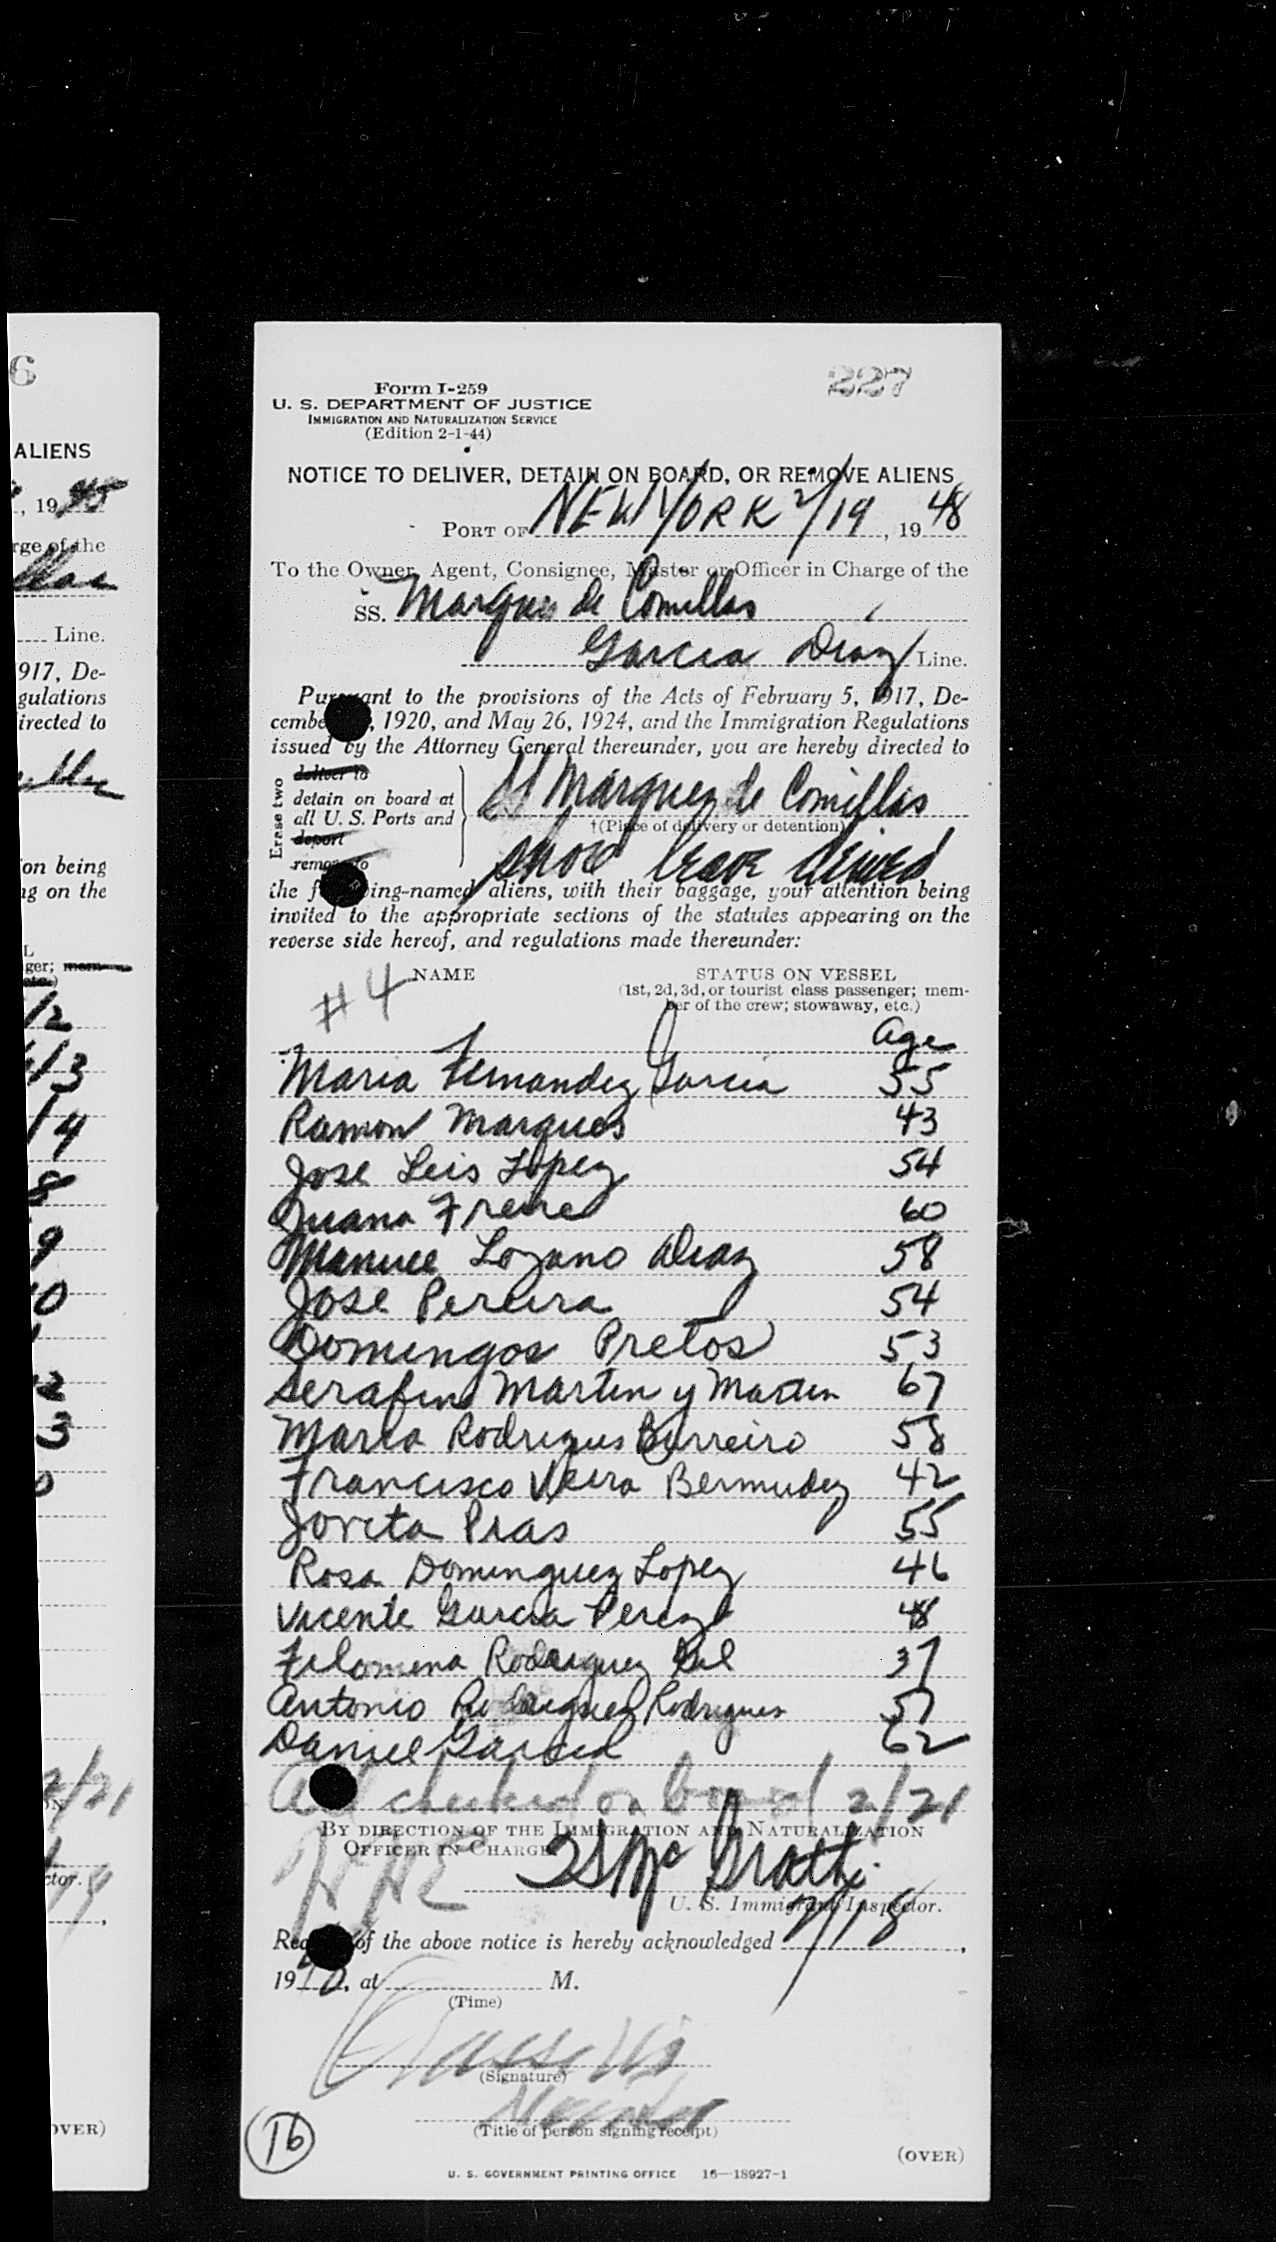 6
ALIENS
, 19 45
rge of the
Line.
917, De-
gulations
irected to
on being
ng on the
L
ger; mem-
etc.)
/2
/3
/4
8
9
10
2
3
0
2/21
ctor.
OVER)
227
Form I-259
U. S. DEPARTMENT OF JUSTICE
IMMIGRATION AND NATURALIZATION SERVICE
(Edition 2-1-44)
NOTICE TO DELIVER, DETAIN ON BOARD, OR REMOVE ALIENS
PORT OF NEW YORK 2/19, 19 48
To the Owner, Agent, Consignee, Master or Officer in Charge of the
SS. Marques de Comillas
Garcia Diaz Line.
Pursuant to the provisions of the Acts of February 5, 1917, De-
cember , 1920, and May 26, 1924, and the Immigration Regulations
issued by the Attorney General thereunder, you are hereby directed to
Erase two
deliver to
detain on board at
all U. S. Ports and
deport
remove to
SS Marquez de Comillas
†(Place of delivery or detention)
shore leave denied
the following-named aliens, with their baggage, your attention being
invited to the appropriate sections of the statutes appearing on the
reverse side hereof, and regulations made thereunder:
#4 NAME STATUS ON VESSEL
(1st, 2d, 3d, or tourist class passenger; mem-
ber of the crew; stowaway, etc.)
Age
Maria Fernandez Garcia 55
Ramon Marques 43
Jose Leis Lopez 54
Juana Freire 60
Manuel Lozano Diaz 58
Jose Pereira 54
Domingos Pretos 53
Serafin Martin y Martin 67
Maria Rodrigues Barreiro 58
Francisco Vieira Bermudez 42
Jovita Pias 55
Rosa Dominguez Lopez 46
Vicente Garcia Perez 48
Filomena Rodriguez Gil 37
Antonio Rodriguez Rodrigues 57
Daniel Garcia 62
All checked on board 2/21
BY DIRECTION OF THE IMMIGRATION AND NATURALIZATION
OFFICER IN CHARGE
McGrath
U. S. Immigrant Inspector.
Receipt of the above notice is hereby acknowledged 2/18,
19 , at M.
(Time)
(Signature)
(Title of person signing receipt)
16
(OVER)
U. S. GOVERNMENT PRINTING OFFICE 16—18927-1